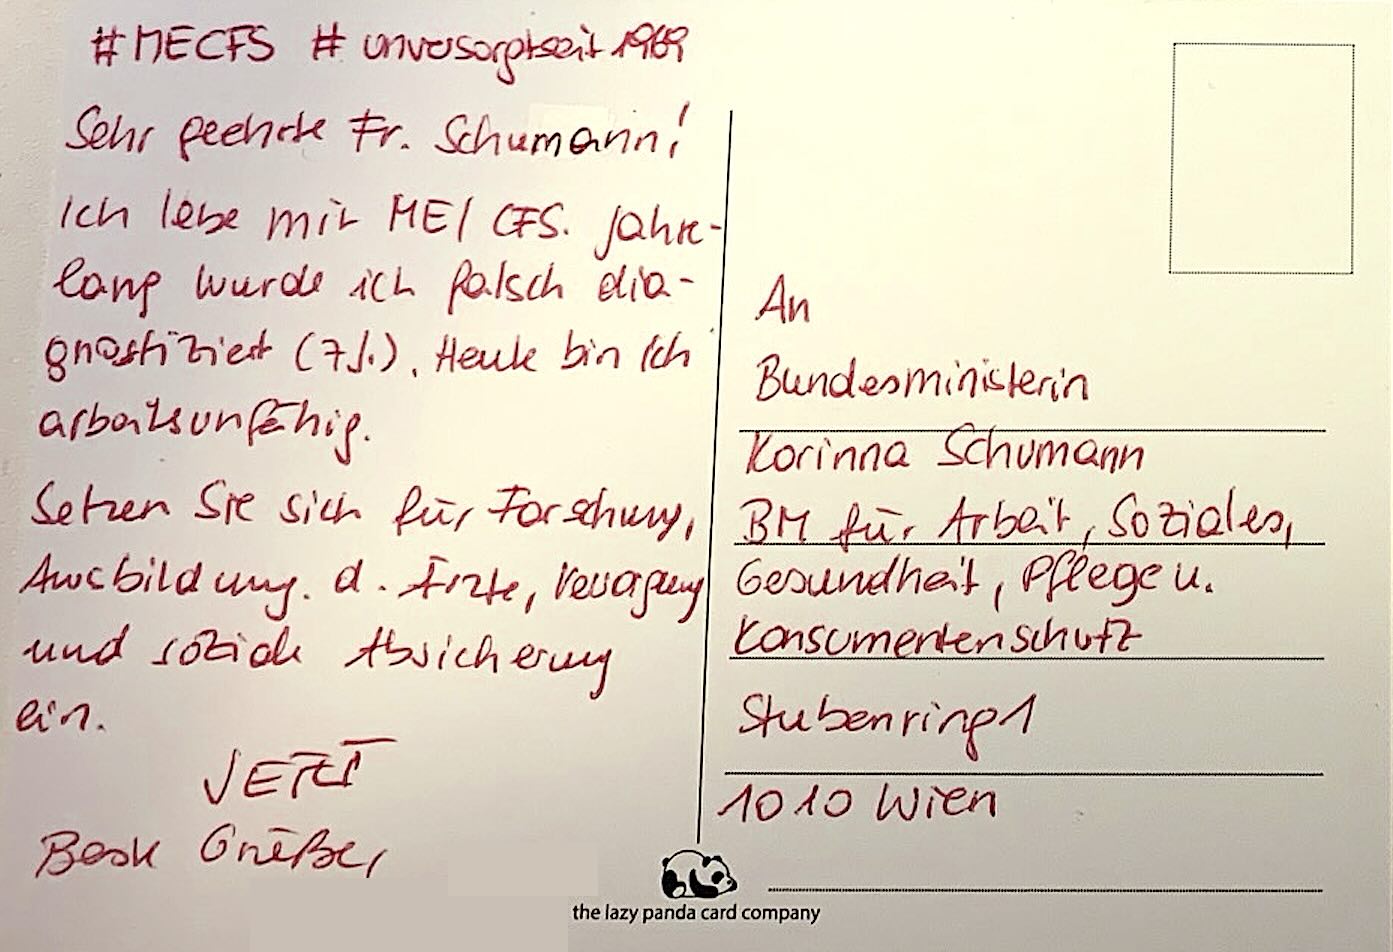 #MECFS #unversorgtseit1969
Sehr geehrte Fr. Schumann!
Ich lebe mit ME/CFS. Jahre-
lang wurde ich falsch dia-
gnostiziert (7J.). Heute bin ich
arbeitsunfähig.
Setzen Sie sich für Forschung,
Ausbildung. d. Ärzte, Versorgung
und soziale Absicherung
ein.
JETZT
Beste Grüße,
An
Bundesministerin
Korinna Schumann
BM für Arbeit, Soziales,
Gesundheit, Pflege u.
Konsumentenschutz
Stubenring 1
1010 Wien
the lazy panda card company